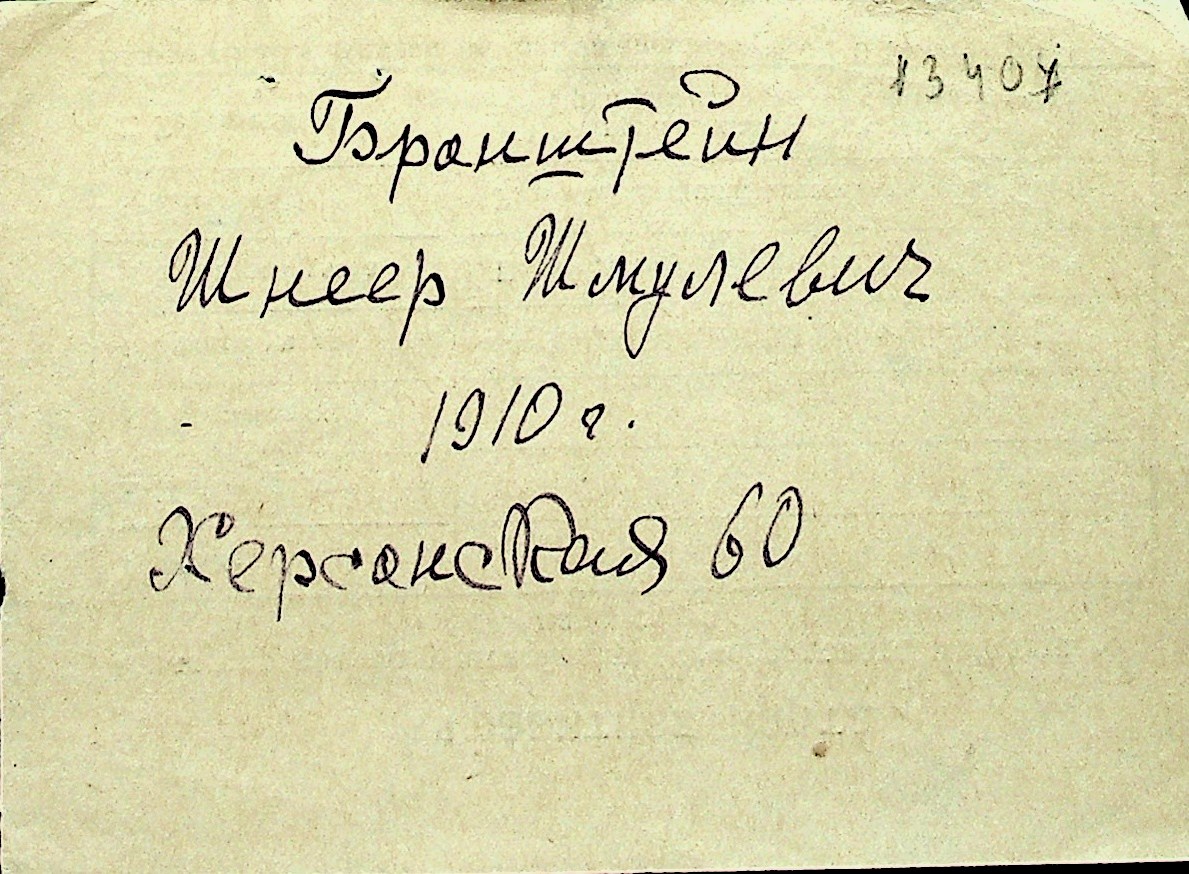 13407
Бранштейн
Шнеер Шмулевич
1910 г.
Херсонская 60